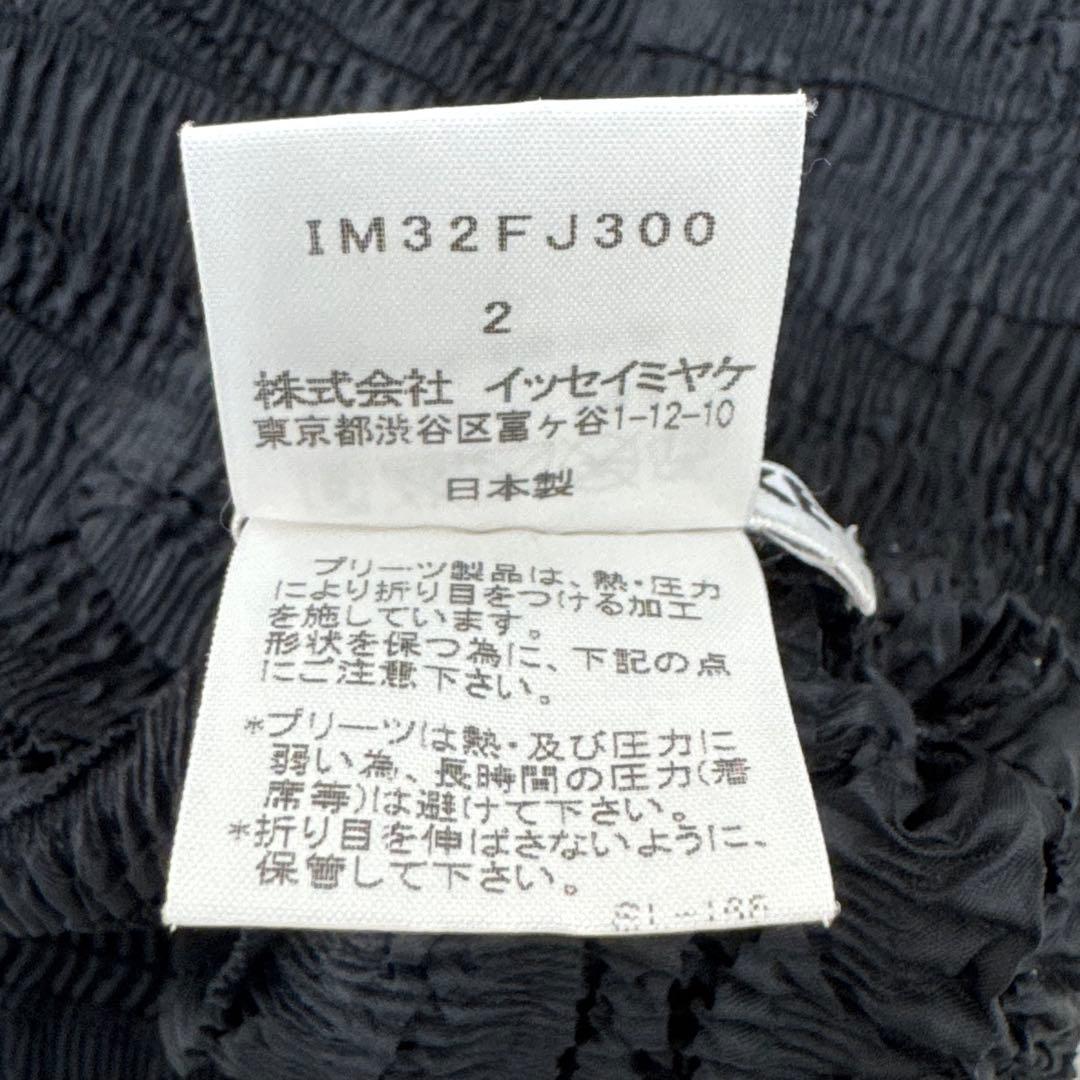 IM32FJ300
2
株式会社 イッセイミヤケ
東京都渋谷区富ヶ谷1-12-10
日本製
プリーツ製品は、熱・圧力
により折り目をつける加工
を施しています。
形状を保つ為に、下記の点
にご注意下さい。
*プリーツは熱・及び圧力に
弱い為、長時間の圧力(着
席等)は避けて下さい。
*折り目を伸ばさないように、
保管して下さい。